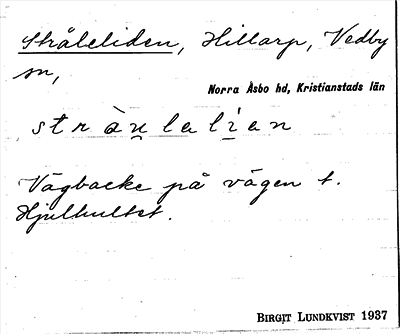 Skåleliden, Hillarp, Vedby
sn,
Norra Åsbo hd, Kristianstads län
Vägbacke på vägen t.
Hjulhultet.
BIRGIT LUNDKVIST 1937